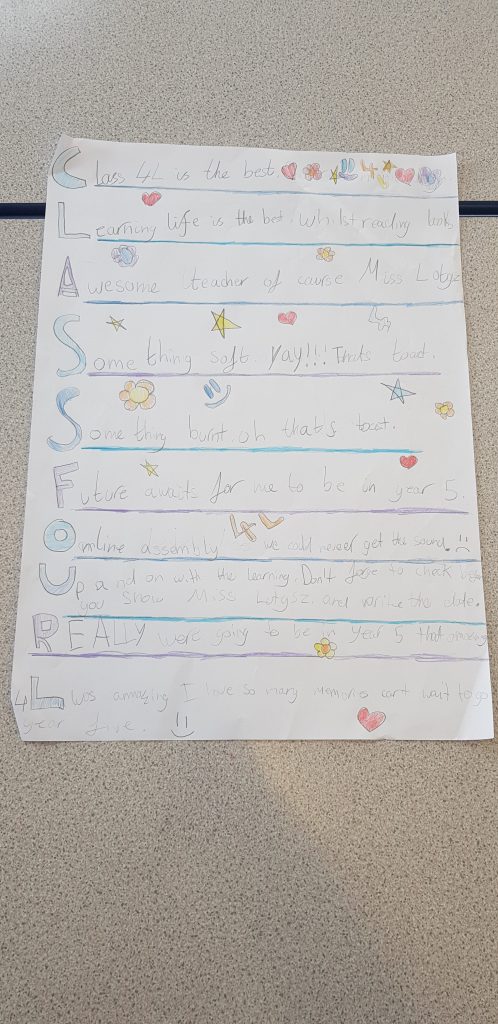 Class 4L is the best. 4L
Learning life is the best. Whilst reading books
Awesome teacher of course Miss Lotysz
4L
Something soft. yay!!! Thats toast.
Something burnt. oh that's toast.
Future awaits for me to be in year 5.
4L
Online assembly we could never get the sound.
Up and on with the learning. Don't forge to check
you show Miss Lotysz. and write the date.
REALLY were going to be in Year 5 that amazing
4L was amazing I love so many memories can't wait to go
year five.